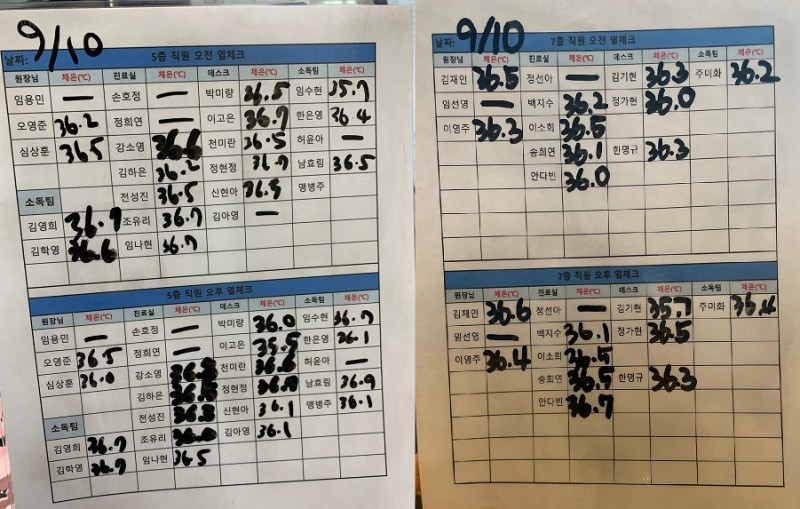 날짜: 9/10 5층 직원 오전 열체크
원장님 체온(℃) 진료실 체온(℃) 데스크 체온(℃) 소독팀 체온(℃)
임용민 — 손호정 — 박미량 36.5 임수현 35.7
오영준 36.2 정희연 — 이고은 36.7 한은영 36.4
심상훈 36.5 강소영 36.6 천미란 36.5 허윤아 —
김하은 36.2 정현정 36.7 남효림 36.5
소독팀 전성진 36.5 신현아 36.5 맹병주
김영희 36.7 조유리 36.7 김아영 —
김학영 36.6 임나현 36.7
5층 직원 오후 열체크
원장님 체온(℃) 진료실 체온(℃) 데스크 체온(℃) 소독팀 체온(℃)
임용민 — 손호정 — 박미량 36.0 임수현 36.7
오영준 36.5 정희연 — 이고은 35.5 한은영 36.1
심상훈 36.0 강소영 천미란 36.6 허윤아 —
김하은 정현정 남효림 36.9
소독팀 전성진 신현아 36.1 맹병주 36.1
김영희 36.7 조유리 김아영 36.1
김학영 36.7 임나현 36.5
날짜: 9/10 7층 직원 오전 열체크
원장님 체온(℃) 진료실 체온(℃) 데스크 체온(℃) 소독팀 체온(℃)
김재인 36.5 정선아 — 김기현 36.3 주미화 36.2
임선영 — 백지수 36.2 정가현 36.0
이영주 36.3 이소희 36.5
송희연 36.1 한명규 36.3
안다빈 36.0
7층 직원 오후 열체크
원장님 체온(℃) 진료실 체온(℃) 데스크 체온(℃) 소독팀 체온(℃)
김재인 36.6 정선아 — 김기현 35.7 주미화 36.4
임선영 — 백지수 36.1 정가현 36.5
이영주 36.4 이소희 36.5
송희연 36.5 한명규 36.3
안다빈 36.7